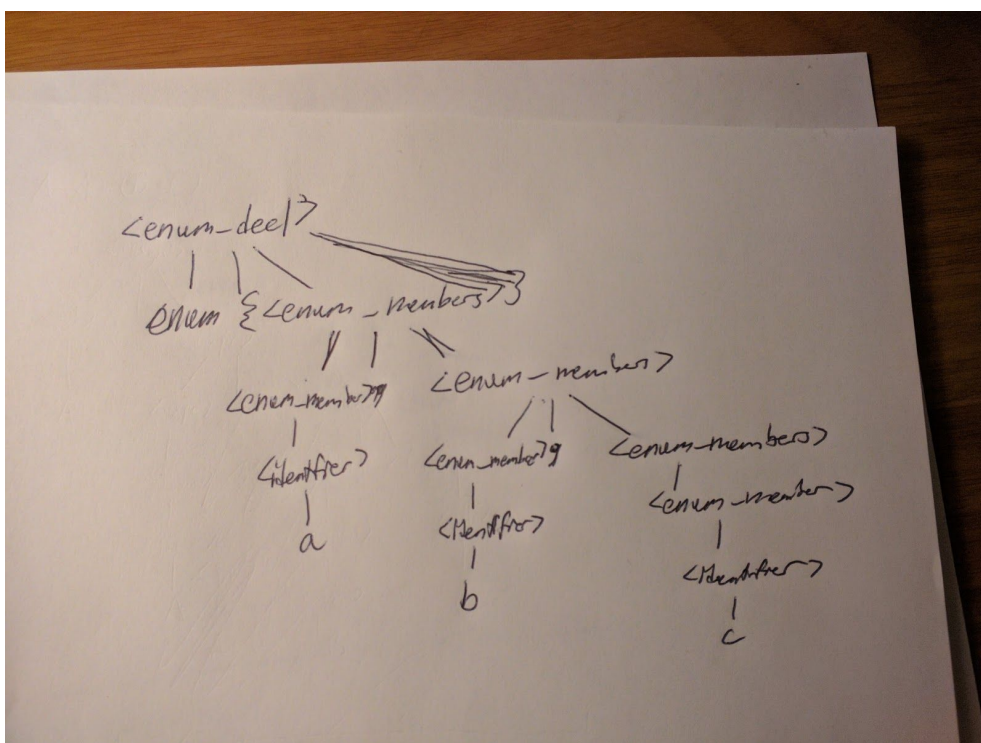 <enum_decl>
enum {<enum_members>}
<enum_member>, <enum_members>
<identifier> <enum_member>, <enum_members>
a <identifier> <enum_member>
b <identifier>
c